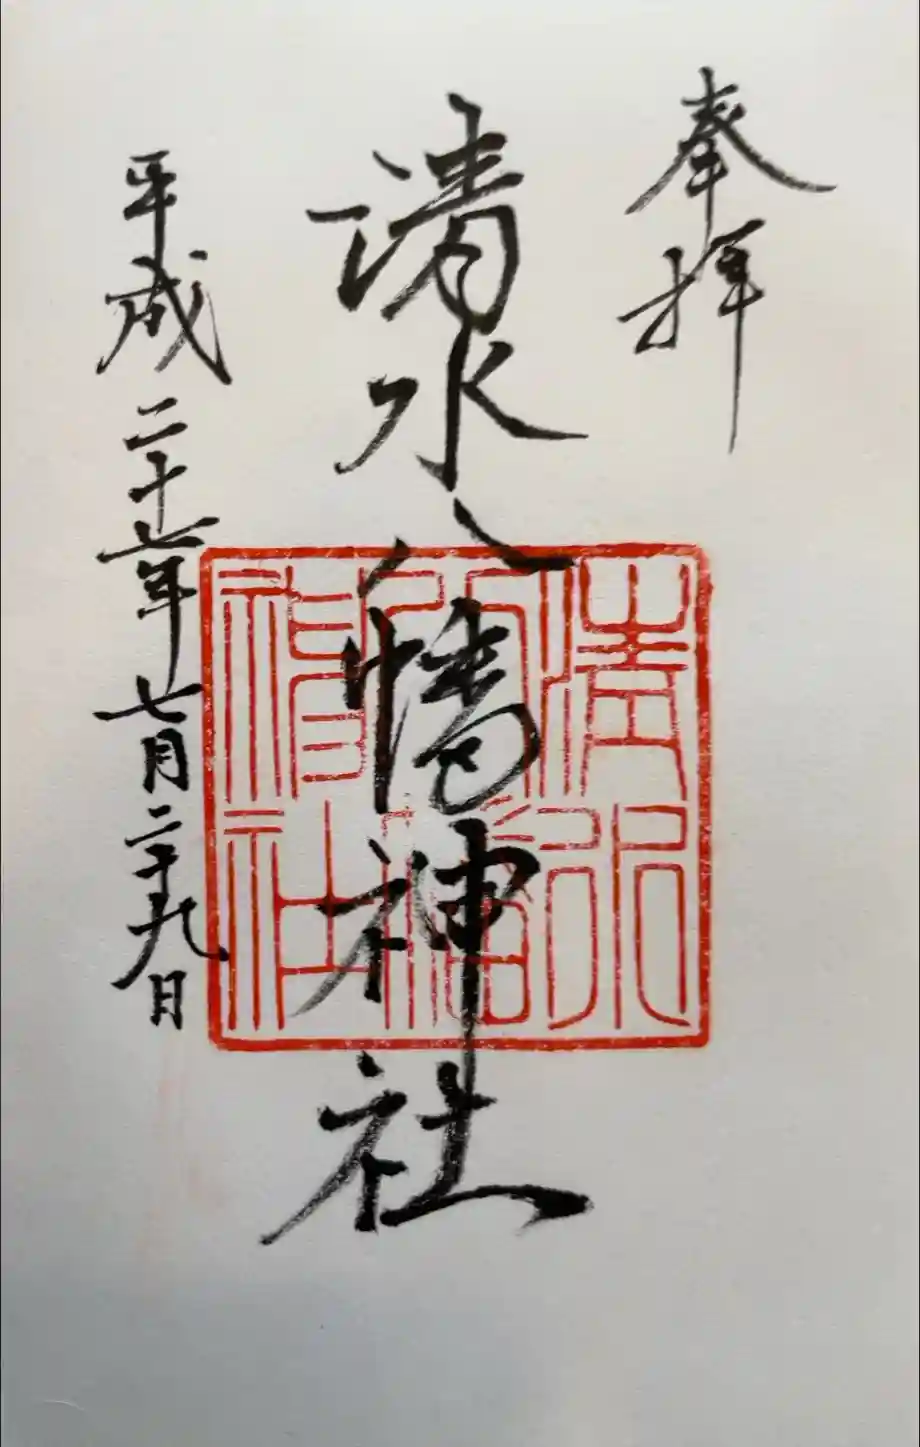 奉拝
清水八幡神社
平成二十七年七月二十九日
清水
八幡
神社